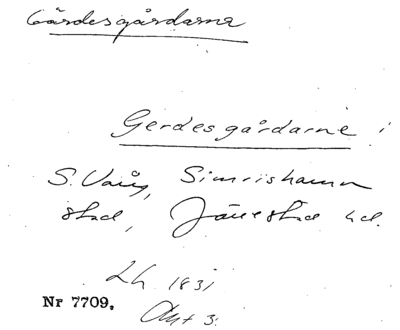 Gärdesgårdarna
Gerdesgårdarne i
S. Vång, Simrishamn
stad, Järrestad hd.
Lh 1831
Nr 7709.
Akt 3.